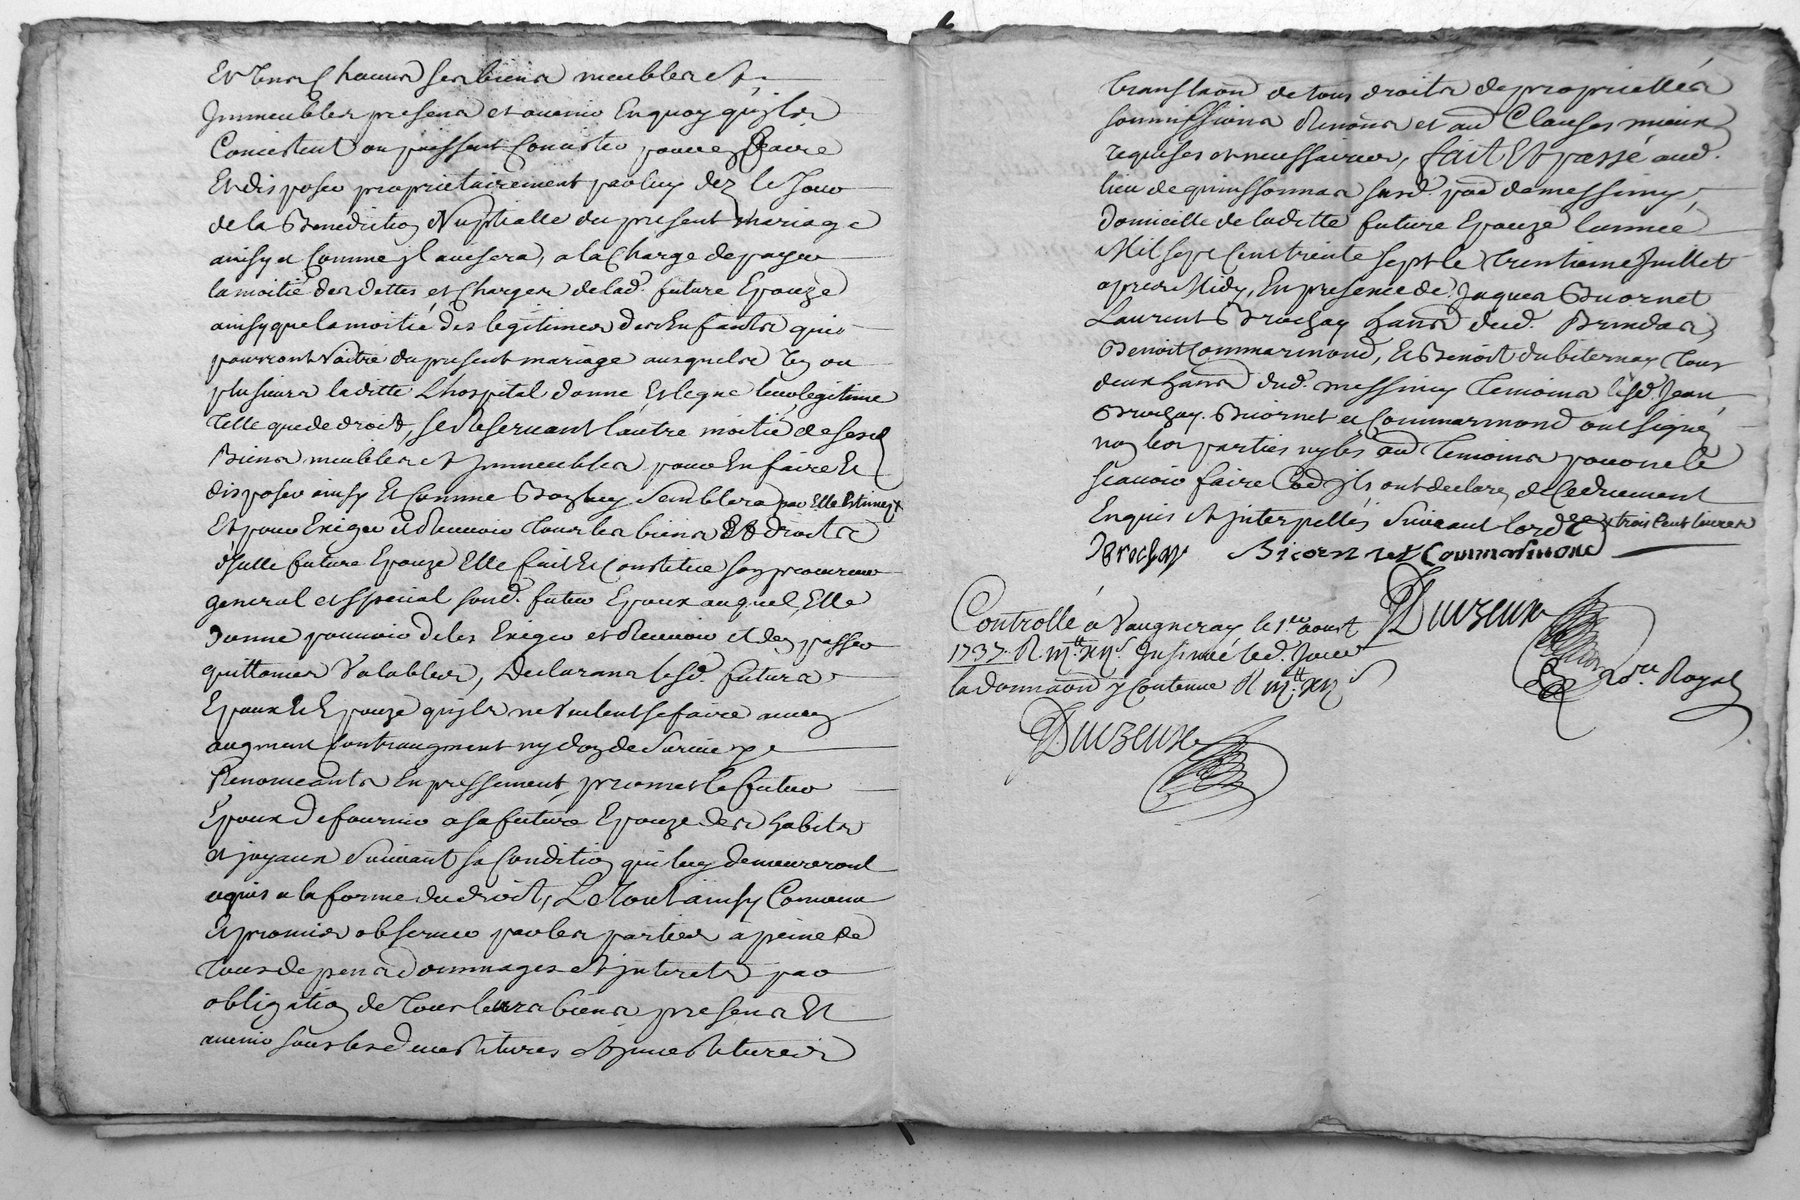 Et Tous Chacuns ses biens meubles et
Jmmeubles presens et avenir En quoy qu'jls
Concistent ou puissent Concister pour en Faire
Et disposer proprietairement par luy dez le Jour
de la Benediction Nuptialle du present Mariage
ainsy et Comme jl avisera, a la Charge de payer
la moitié des dettes et Charges de lad. future Epouze
ainsy que la moitié des legitimes des Enfants qui
pourront Naitre du present mariage ausquels Un ou
plusieurs laditte Lhospital donne Et legue leur legitime
Telle que de droit, se Reservant l'autre moitié de sesd
Biens meubles et Jmmeubles pour En faire Et
disposer ainsy Et Comme Bon luy Semblera par Elle Estimez x
Et pour Exiger et Recevoir Tous les biens Et droits
de laditte future Epouze Elle fait Et Constitue son procureur
general et special sond. futur Epoux auquel Elle
donne pouvoir de les Exiger et Recevoir et d'en passer
quittances Valables, Declarans lesd. futurs
Epoux Et Epouze qu'jls ne Veulent se faire aucun
augment Contraugment ny don de Survie
Renonceants Expressement, promet le futur
Epoux De fournir a sa future Epouze des habits
et joyaux Suivant sa Condition qui luy demeureront
aquis a la forme du droit, Le Tout ainsy Convenu
Et promis observer par les parties a peine de
Tous depens Dommages et Jnterets par
obligation de Tous leurs biens presens Et
avenir sous les devestitures et Jnvestitures
Translaon de tous droits de proprietés
soumissions Renons et au Clauses mieux
requises et necessaires, fait Et passé aud.
lieu de quinssonnas susd. par. de messimy,
domicille de laditte future Epouze l'année
Mil sept Cent trente sept le trentieme Juillet
apres Midy, En presence de Jaques Buornet
Laurent Brochay habts dud. Brindas,
Benoit Commarmond, Et Benoit dubiternay Tous
deux habts dud. messimy Temoins lesd. Jean
Brochay. Buornet et Commarmond ont signé,
non les parties ny les au Temoins pour ne le
scavoir faire Coe jls ont declaré, de Ce duement
Enquis et jnterpellés Suivant l'ordce x trois Cent livres
Brochay Bicornet Commarmond
Duczeux
Controllé à Vaugneray le 1er aoust
1737. R
la donnaon y Contenue R
Nore. Royal
Duczeux